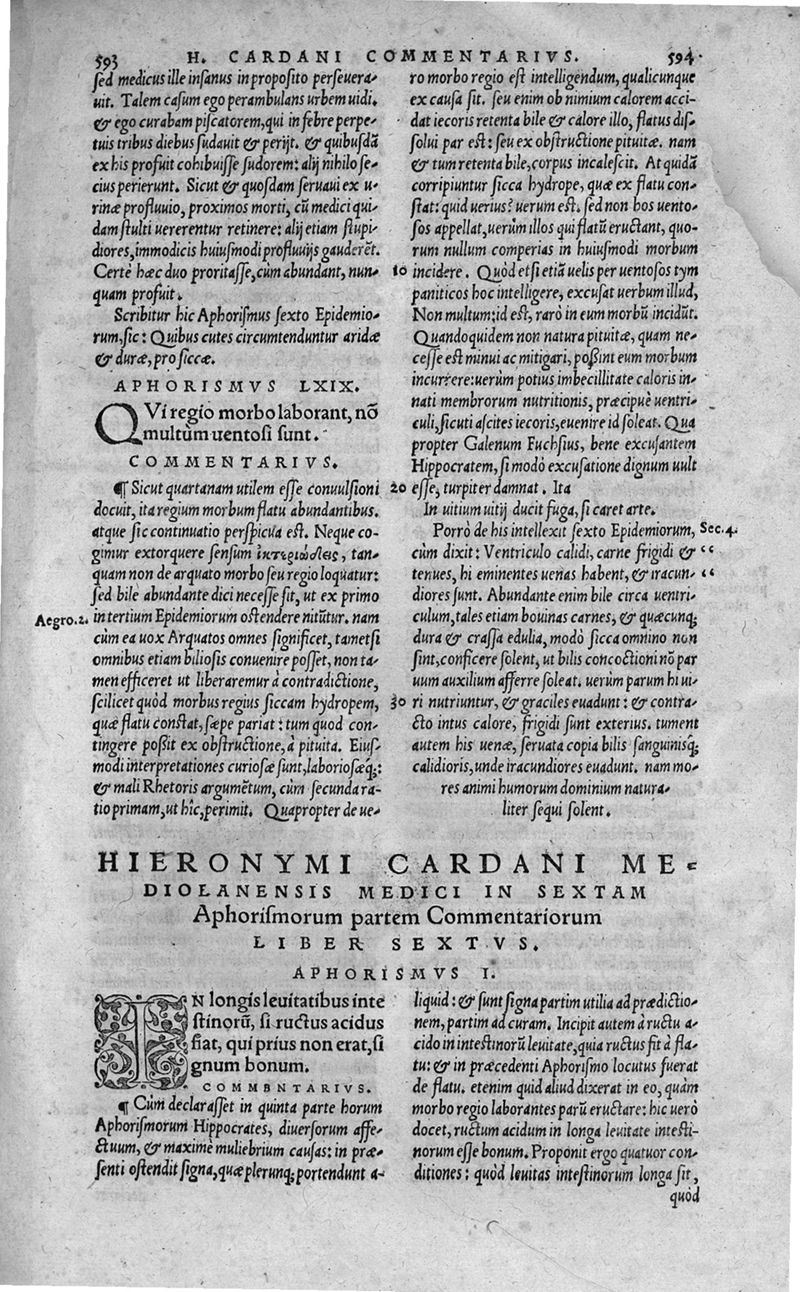 593 H. CARDANI COMMENTARIVS. 594
sed medicus ille insanus in proposito perseuera-
uit. Talem casum ego perambulans urbem uidi.
& ego curabam piscatorem, qui in febre perpe-
tuis tribus diebus sudauit & perijt. & quibusdā
ex his profuit cohibuisse sudorem: alij nihilo se-
cius perierunt. Sicut & quosdam seruaui ex u-
rinæ profluuio, proximos morti, cū medici qui-
dam stulti uererentur retinere: alij etiam stupi-
diores, immodicis huiusmodi profluuijs gauderēt.
Certè hæc duo proritasse, cùm abundant, nun-
quam profuit.
Scribitur hic Aphorismus sexto Epidemio-
rum, sic: Quibus cutes circumtenduntur aridæ
& duræ, pro siccæ.
APHORISMVS LXIX.
QVi regio morbo laborant, nō
multum uentosi sunt.
COMMENTARIVS.
¶ Sicut quartanam utilem esse conuulsioni
docuit, ita regium morbum flatu abundantibus.
atque sic continuatio perspicua est. Neque co-
gimur extorquere sensum ἰκτεριώδεις, tan-
quam non de arquato morbo seu regio loquatur:
sed bile abundante dici necesse sit, ut ex primo
Aegro.2. in tertium Epidemiorum ostendere nitūtur. nam
cùm ea uox Arquatos omnes significet, tametsi
omnibus etiam biliosis conuenire posset, non ta-
men efficeret ut liberaremur à contradictione,
scilicet quòd morbus regius siccam hydropem,
quæ flatu constat, sæpe pariat: tum quod con-
tingere possit ex obstructione, à pituita. Eius-
modi interpretationes curiosæ sunt, laboriosæq́;:
& mali Rhetoris argumētum, cùm secunda ra-
tio primam, ut hîc, perimit. Quapropter de ue-
ro morbo regio est intelligendum, qualicunque
ex causa sit. seu enim ob nimium calorem acci-
dat iecoris retenta bile & calore illo, flatus dis-
solui par est: seu ex obstructione pituitæ. nam
& tum retenta bile, corpus incalescit. At quidā
corripiuntur sicca hydrope, quæ ex flatu con-
stat: quid uerius? uerum est. sed non hos uento-
sos appellat, uerùm illos qui flatū eructant, quo-
rum nullum comperias in huiusmodi morbum
10 incidere. Quòd etsi etiā uelis per uentosos tym
paniticos hoc intelligere, excusat uerbum illud,
Non multum: id est, rarò in eum morbū incidūt.
Quandoquidem non natura pituitæ, quam ne-
cesse est minui ac mitigari, possint eum morbum
incurrere: uerùm potius imbecillitate caloris in-
nati membrorum nutritionis, præcipuè uentri-
culi, sicuti ascites iecoris, euenire id soleat. Qua
propter Galenum Fuchsius, bene excusantem
Hippocratem, si modò excusatione dignum uult
20 esse, turpiter damnat. Ita
In uitium uitij ducit fuga, si caret arte.
Porrò de his intellexit sexto Epidemiorum, Sec.4.
cùm dixit: Ventriculo calidi, carne frigidi & “
tenues, hi eminentes uenas habent, & iracun- “
diores sunt. Abundante enim bile circa uentri-
culum, tales etiam bouinas carnes, & quæcunq;
dura & crassa edulia, modò sicca omnino non
sint, conficere solent, ut bilis concoctioni nō par
uum auxilium afferre soleat. uerùm parum hi ui-
30 ri nutriuntur, & graciles euadunt: & contra-
cto intus calore, frigidi sunt exterius. tument
autem his uenæ, seruata copia bilis sanguinisq́;
calidioris, unde iracundiores euadunt. nam mo-
res animi humorum dominium natura-
liter sequi solent.
HIERONYMI CARDANI ME-
DIOLANENSIS MEDICI IN SEXTAM
Aphorismorum partem Commentariorum
LIBER SEXTVS.
APHORISMVS I.
IN longis leuitatibus inte
stinorū, si ructus acidus
fiat, qui prius non erat, si
gnum bonum.
COMMENTARIVS.
¶ Cùm declarasset in quinta parte horum
Aphorismorum Hippocrates, diuersorum affe-
ctuum, & maximè muliebrium causas: in præ-
senti ostendit signa, quæ plerunq; portendunt a-
liquid: & sunt signa partim utilia ad prædictio-
nem, partim ad curam. Incipit autem à ructu a-
cido in intestinorū leuitate, quia ructus fit à fla-
tu: & in præcedenti Aphorismo locutus fuerat
de flatu. etenim quid aliud dixerat in eo, quàm
morbo regio laborantes parū eructare: hic uerò
docet, ructum acidum in longa leuitate intesti-
norum esse bonum. Proponit ergo quatuor con-
ditiones: quòd leuitas intestinorum longa sit,
quòd